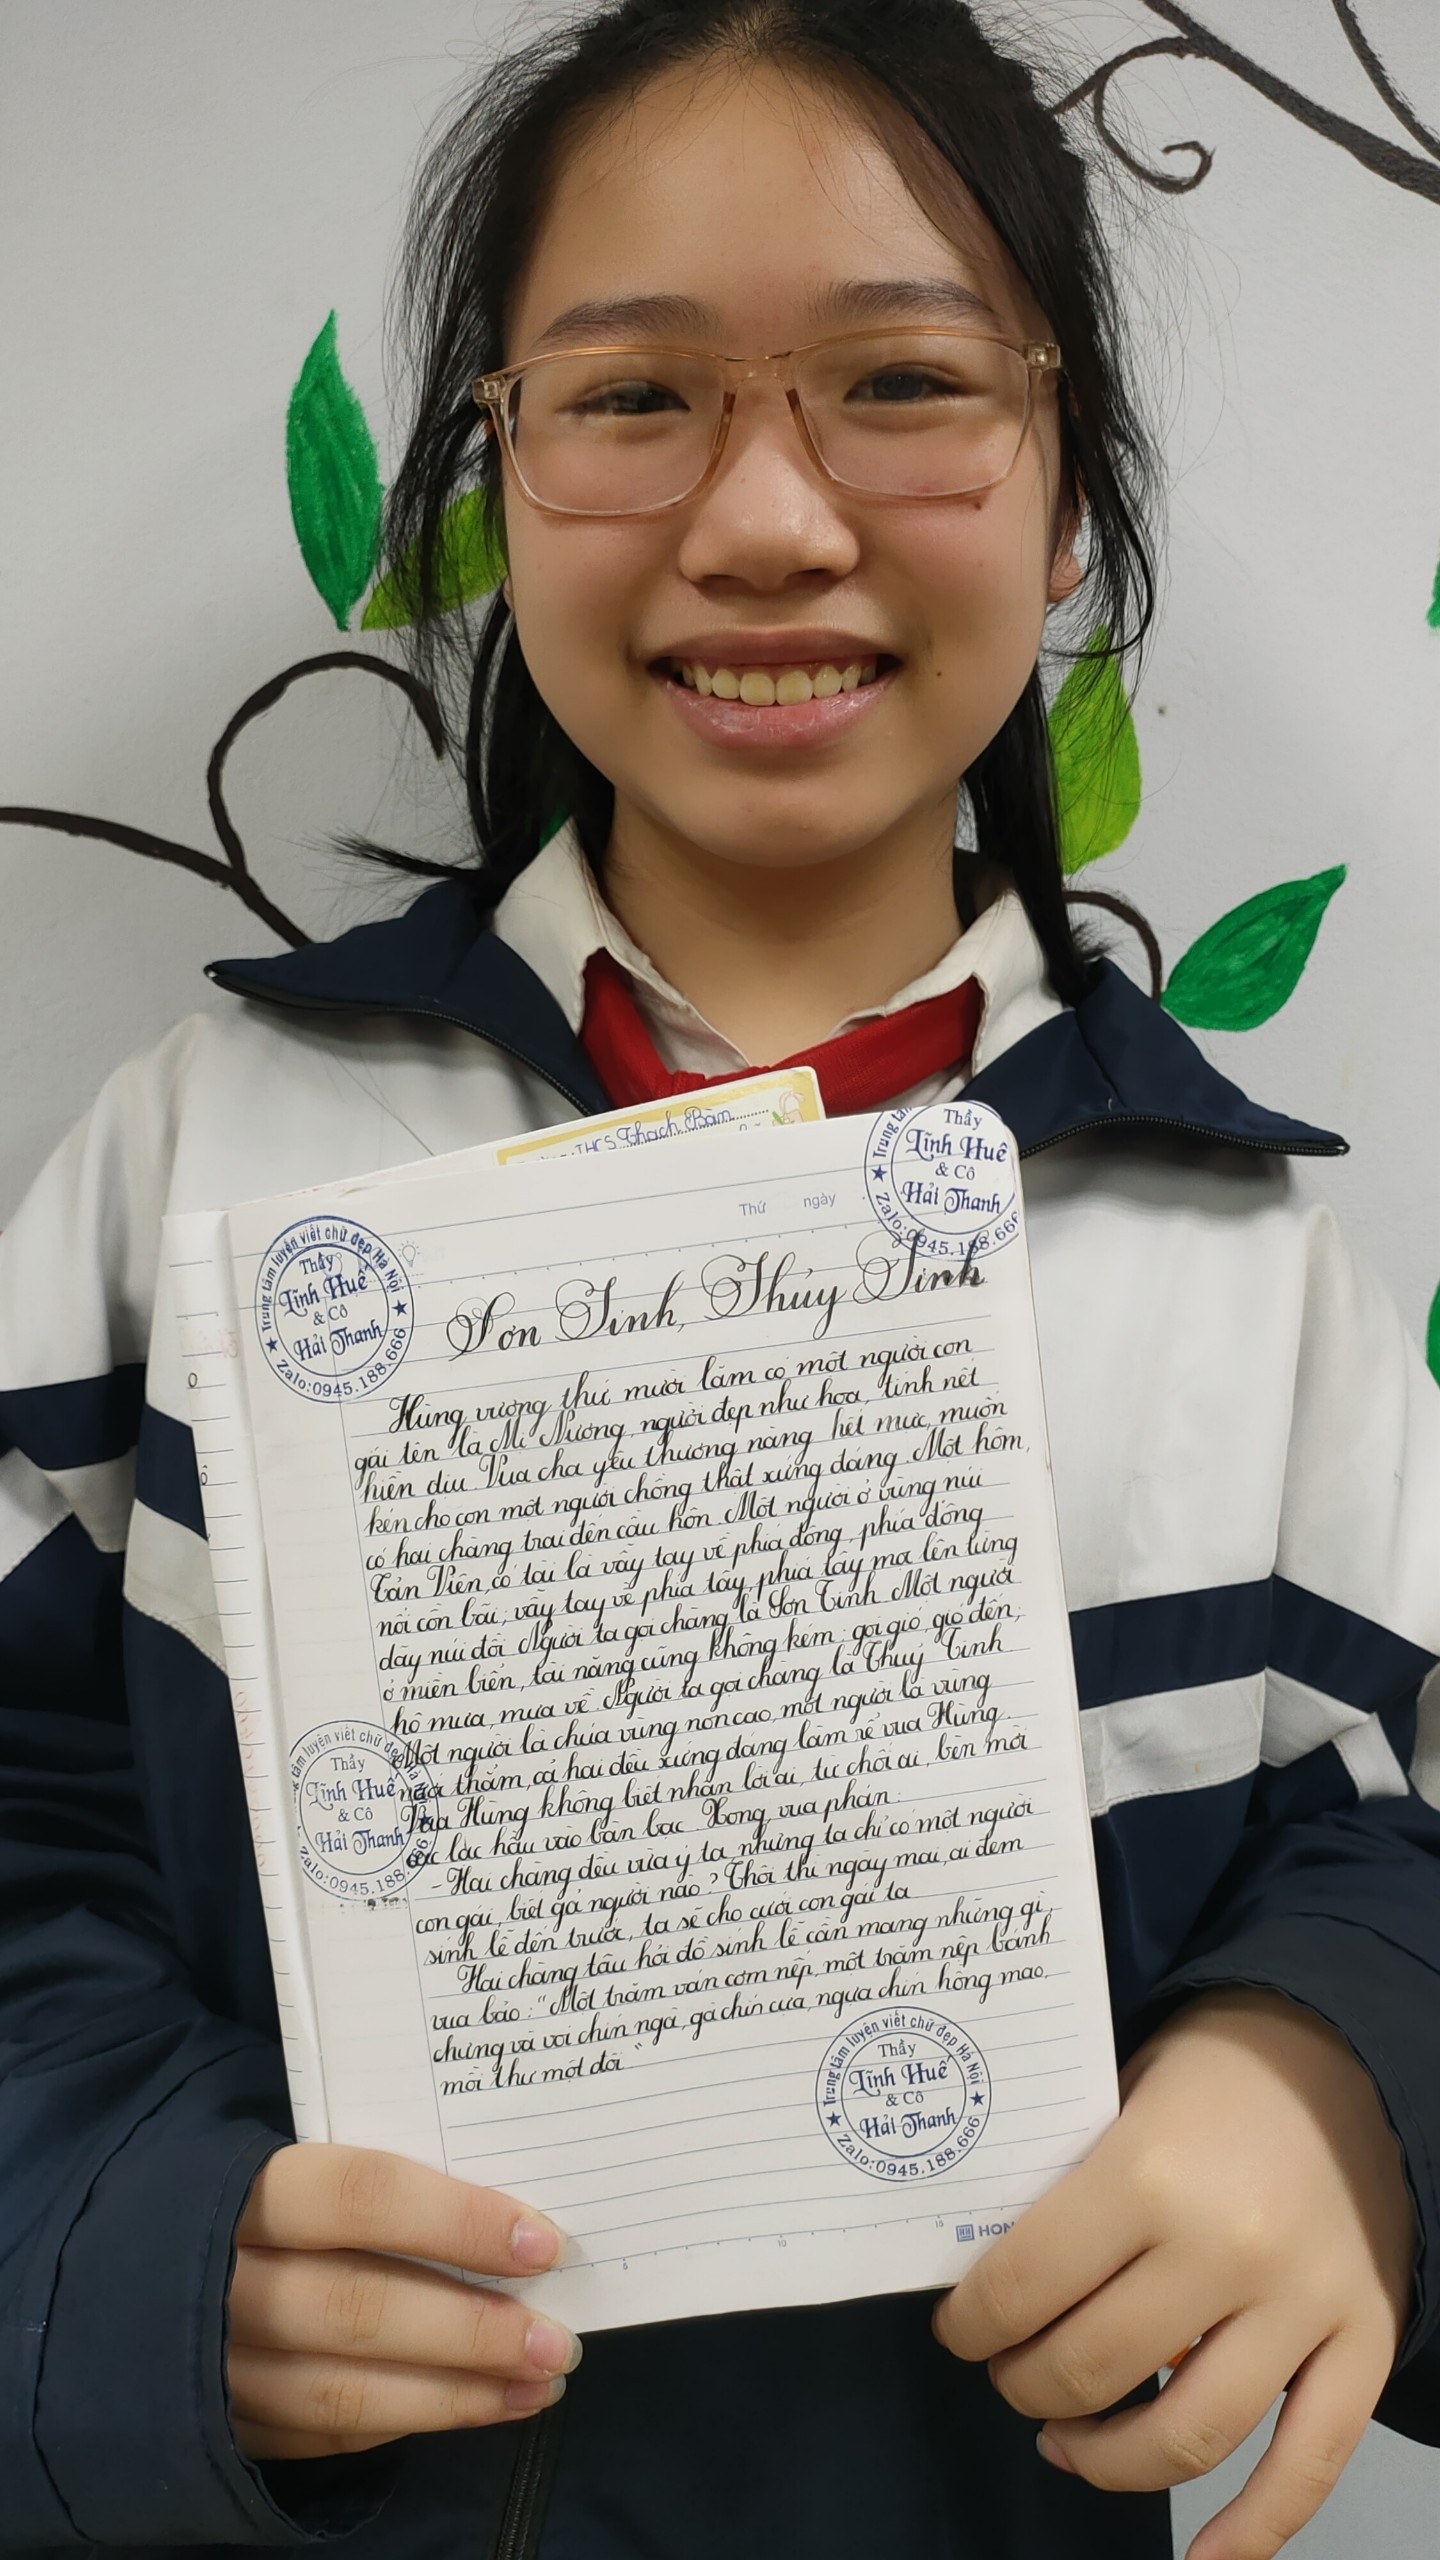 THCS Thạch Bàn
Thứ ngày
Trung tâm luyện viết chữ đẹp Hà Nội
Thầy
Lĩnh Huê
& Cô
Hải Thanh
Zalo:0945.188.666
Trung
Thầy
Lĩnh Huê
& Cô
Hải Thanh
Zalo:0945.188.66
Sơn Tinh, Thủy Tinh
Hùng vương thứ mười lăm có một người con
gái tên là Mị Nương, người đẹp như hoa, tính nết
hiền dịu. Vua cha yêu thương nàng hết mực, muốn
kén cho con một người chồng thật xứng đáng. Một hôm,
có hai chàng trai đến cầu hôn. Một người ở vùng núi
Tản Viên, có tài lạ vẫy tay về phía đông, phía đông
nổi cồn bãi; vẫy tay về phía tây, phía tây mọc lên từng
dãy núi đồi. Người ta gọi chàng là Sơn Tinh. Một người
ở miền biển, tài năng cũng không kém: gọi gió, gió đến;
hô mưa, mưa về. Người ta gọi chàng là Thuỷ Tinh
Một người là chúa vùng non cao, một người là vùng
thẳm, cả hai đều xứng đáng làm rể vua Hùng.
Vua Hùng không biết nhận lời ai, từ chối ai, bèn mời
các lạc hầu vào bàn bạc. Xong, vua phán:
- Hai chàng đều vừa ý ta, nhưng ta chỉ có một người
con gái, biết gả người nào? Thôi thì ngày mai, ai đem
sính lễ đến trước, ta sẽ cho cưới con gái ta
Hai chàng tâu hỏi đồ sính lễ cần mang những gì,
vua bảo: "Một trăm ván cơm nếp, một trăm nệp bánh
chưng và voi chín ngà, gà chín cựa, ngựa chín hồng mao,
mỗi thứ một đôi"
tâm luyện viết chữ đẹp Hà
Thầy
Lĩnh Huê
& Cô
Hải Thanh
Zalo:0945.188.666
Trung tâm luyện viết chữ đẹp Hà Nội
Thầy
Lĩnh Huê
& Cô
Hải Thanh
Zalo:0945.188.666
5 10 15
HON